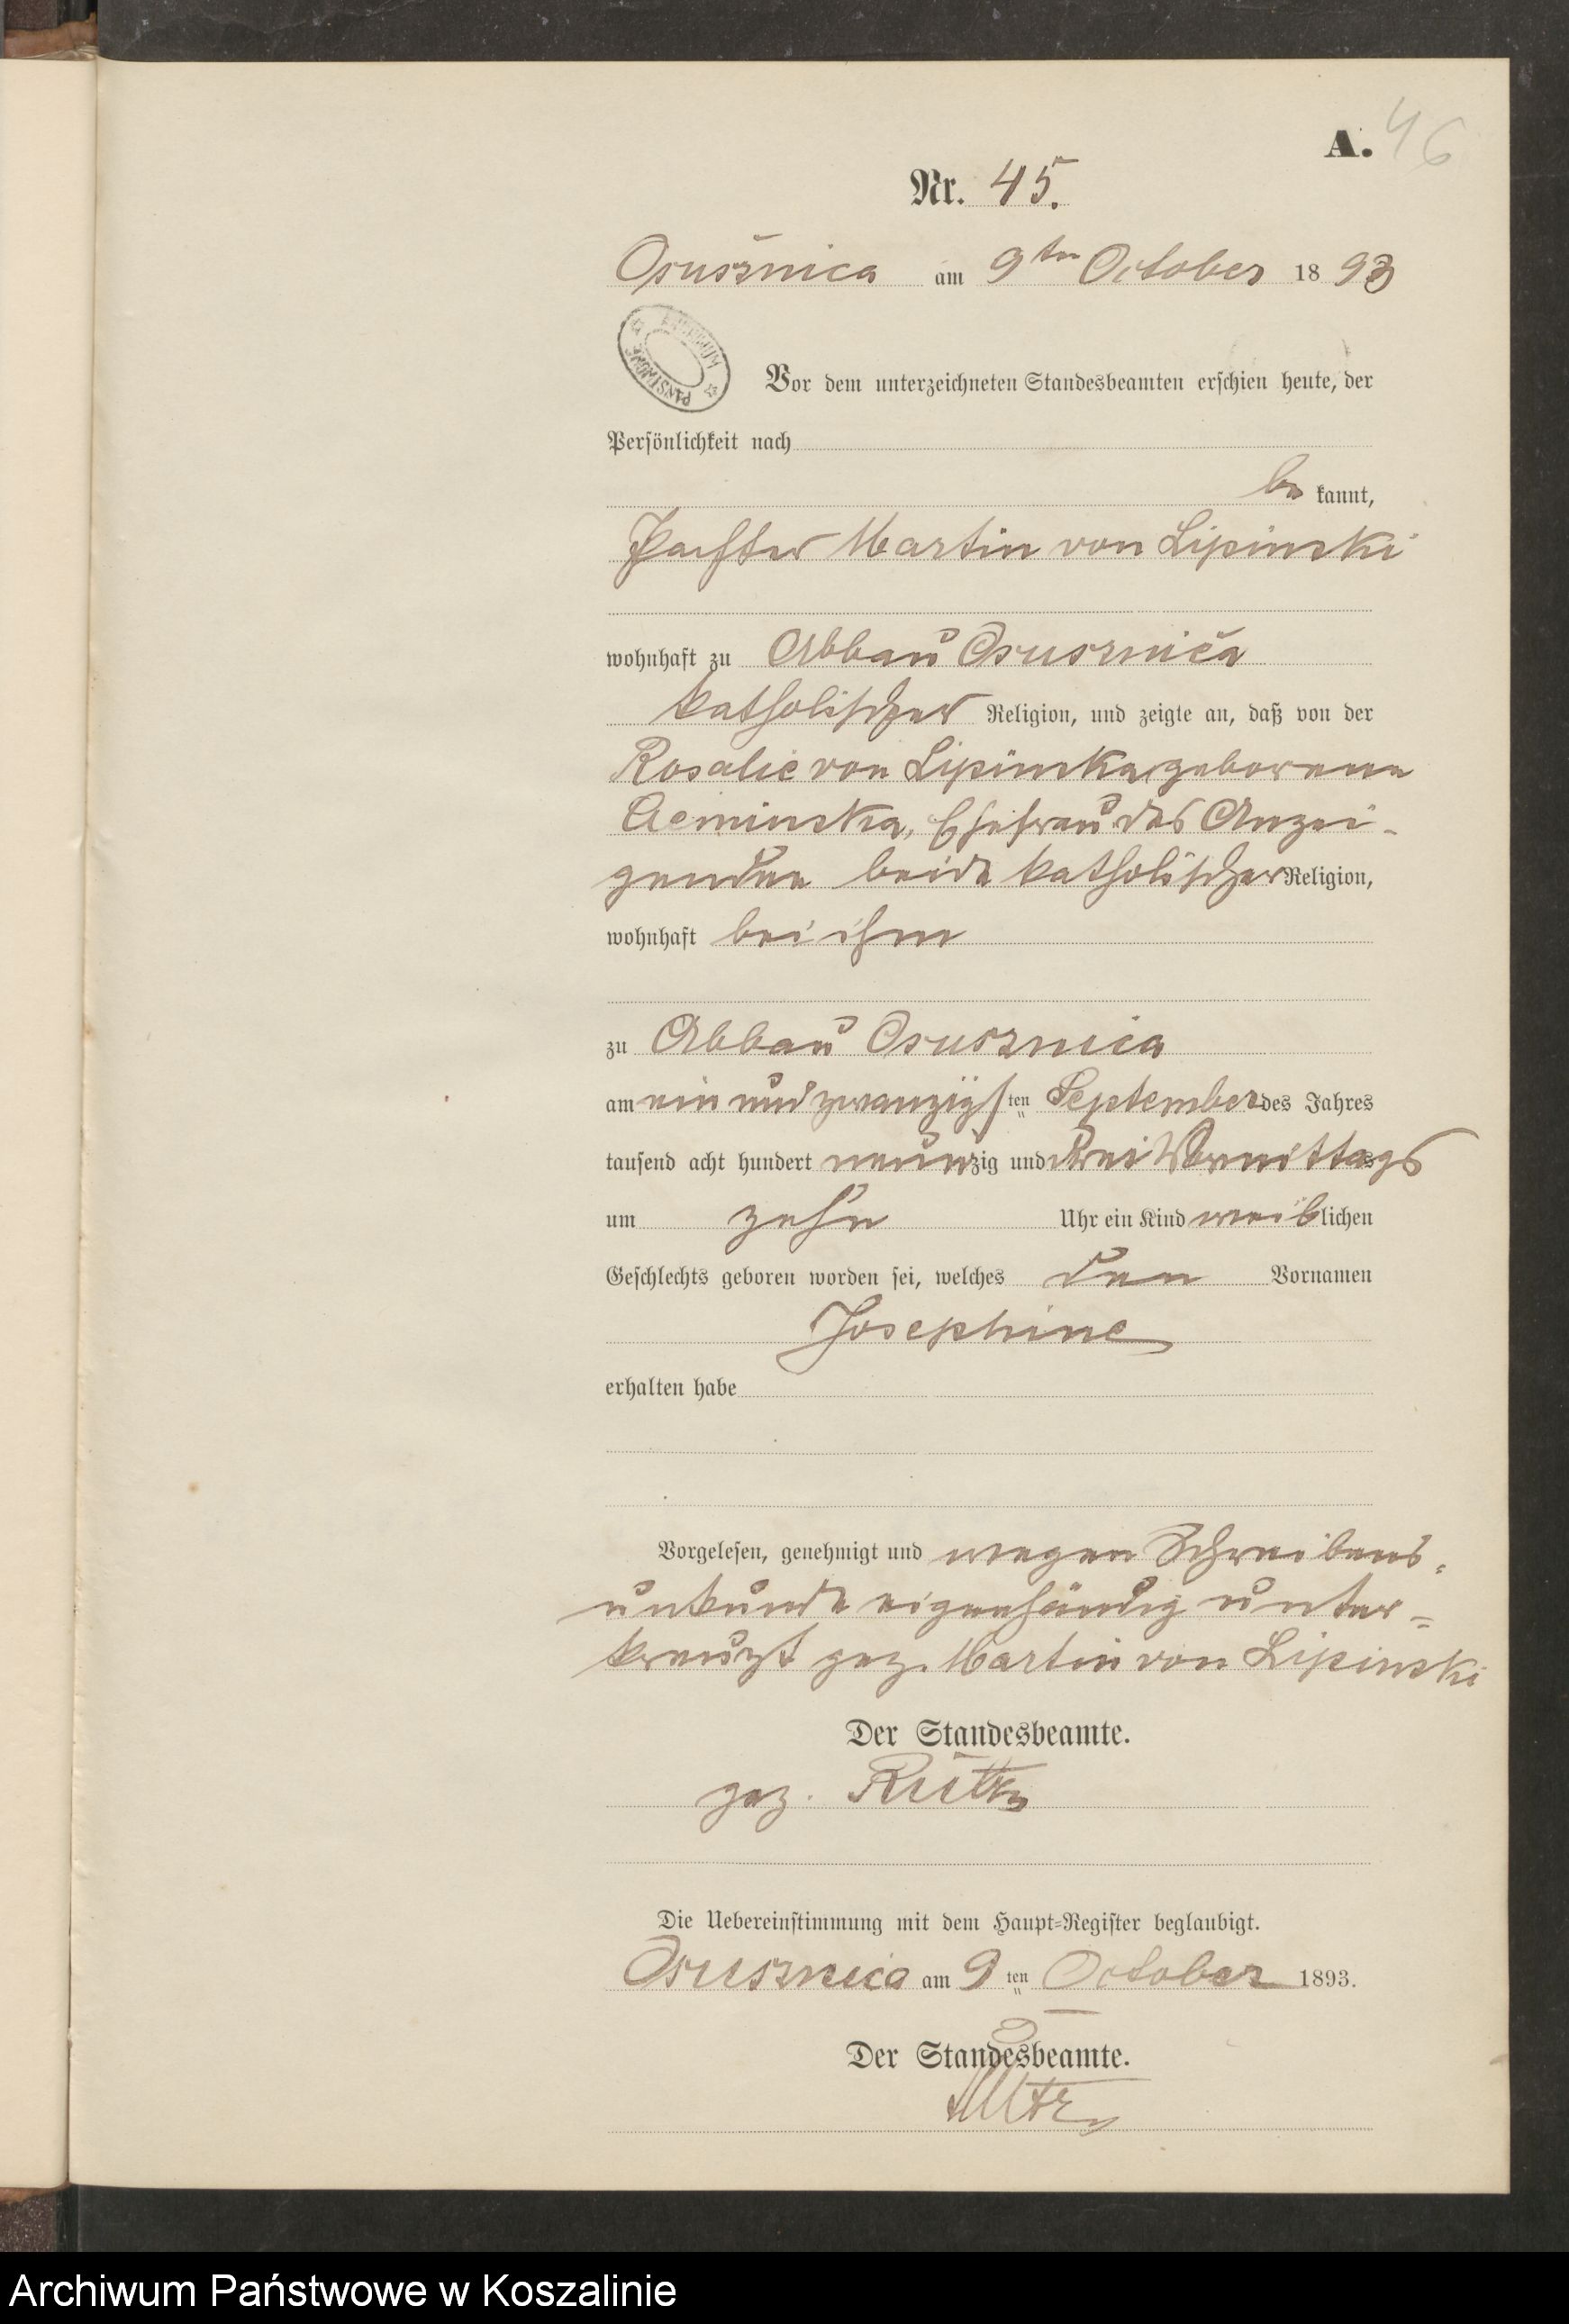 A. 46
Nr. 45.
Osusznica am 9ten October 1893
ARCHIWUM PAŃSTWOWE
Vor dem unterzeichneten Standesbeamten erschien heute, der
Persönlichkeit nach
be kannt,
Paechter Martin von Lipinski
wohnhaft zu Abbau Osusznica
katholischer Religion, und zeigte an, daß von der
Rosalie von Lipinska, geborenen
Ehefrau des Anzei-
genden beide katholischer Religion,
wohnhaft bei ihm
zu Abbau Osusznica
am ein und zwanzigsten September des Jahres
tausend acht hundert neunzig und drei Vormittags
um zehn Uhr ein Kind weiblichen
Geschlechts geboren worden sei, welches den Vornamen
Josephine
erhalten habe
Vorgelesen, genehmigt und wegen Schreibens-
unkunde eigenhändig unter=
kreuzt gez. Martin von Lipinski
Der Standesbeamte.
gez.
Die Uebereinstimmung mit dem Haupt=Register beglaubigt.
Osusznica am 9ten October 1893.
Der Standesbeamte.
Archiwum Państwowe w Koszalinie